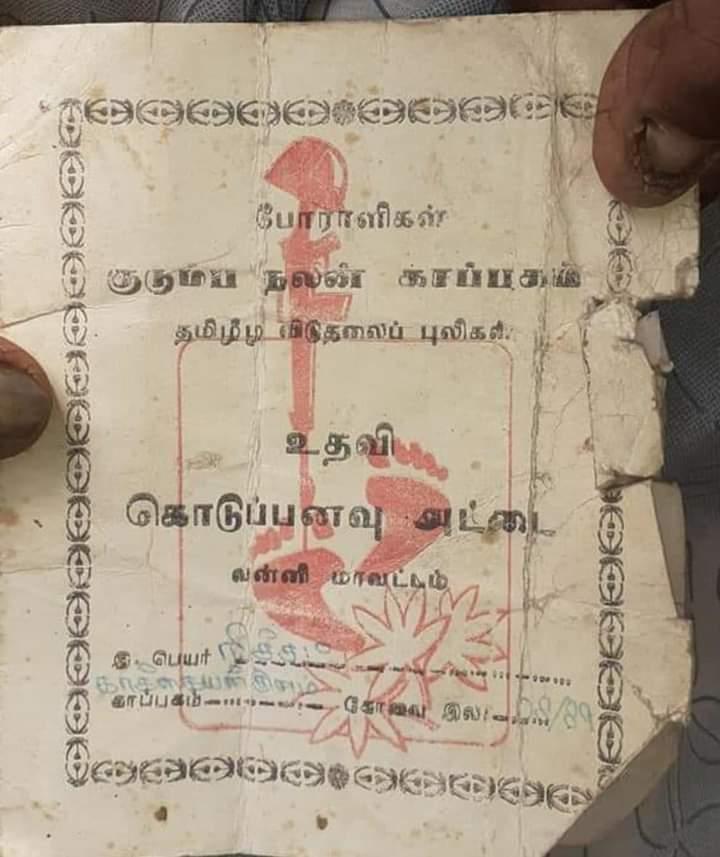 போராளிகள்
குடும்ப நலன் காப்பகம்
தமிழீழ விடுதலைப் புலிகள்.
உதவி
கொடுப்பனவு அட்டை
வன்னி மாவட்டம்
இ. பெயர்
காப்பகம் கோவை இல: